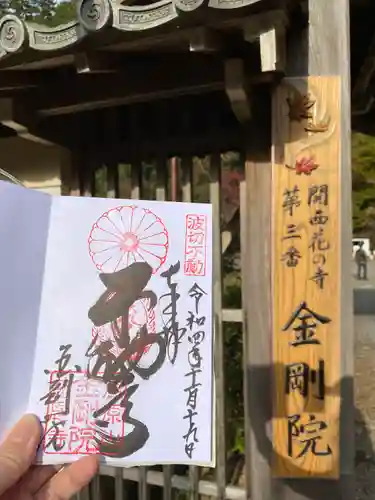 関西花の寺
第三番
金剛院
波切不動
奉拝
令和四年十一月十九日
不動尊
金剛院